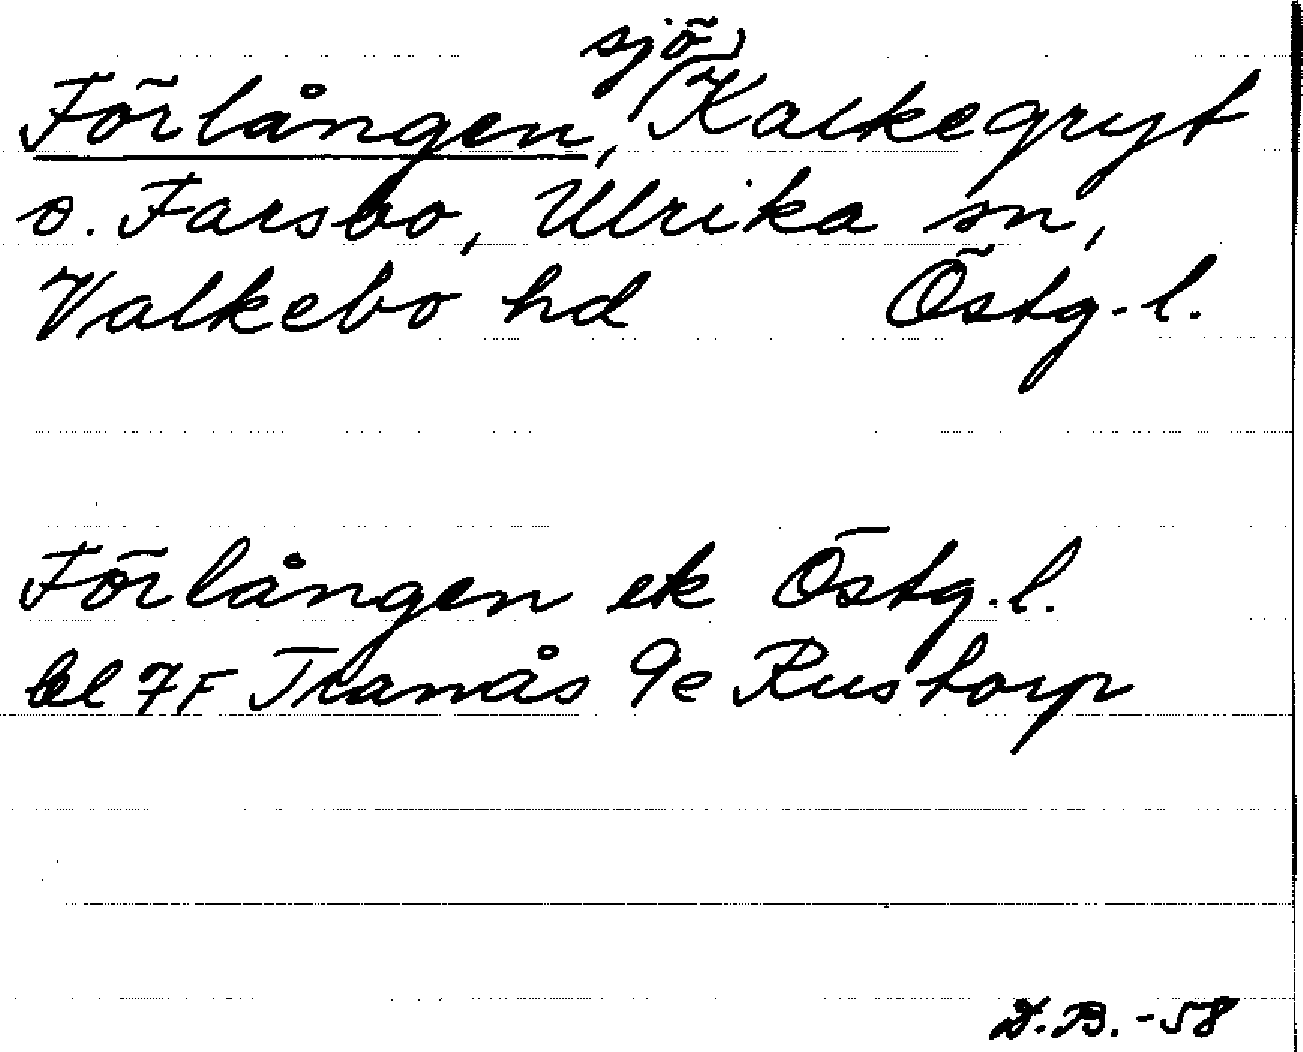 sjö
Förlången, Kalkegryt
o. Farsbo, Ulrika sn,
Valkebo hd Östg.l.
Förlången ek Östg.l.
bl 7F Tranås 9e Rustorp
D.B.-58